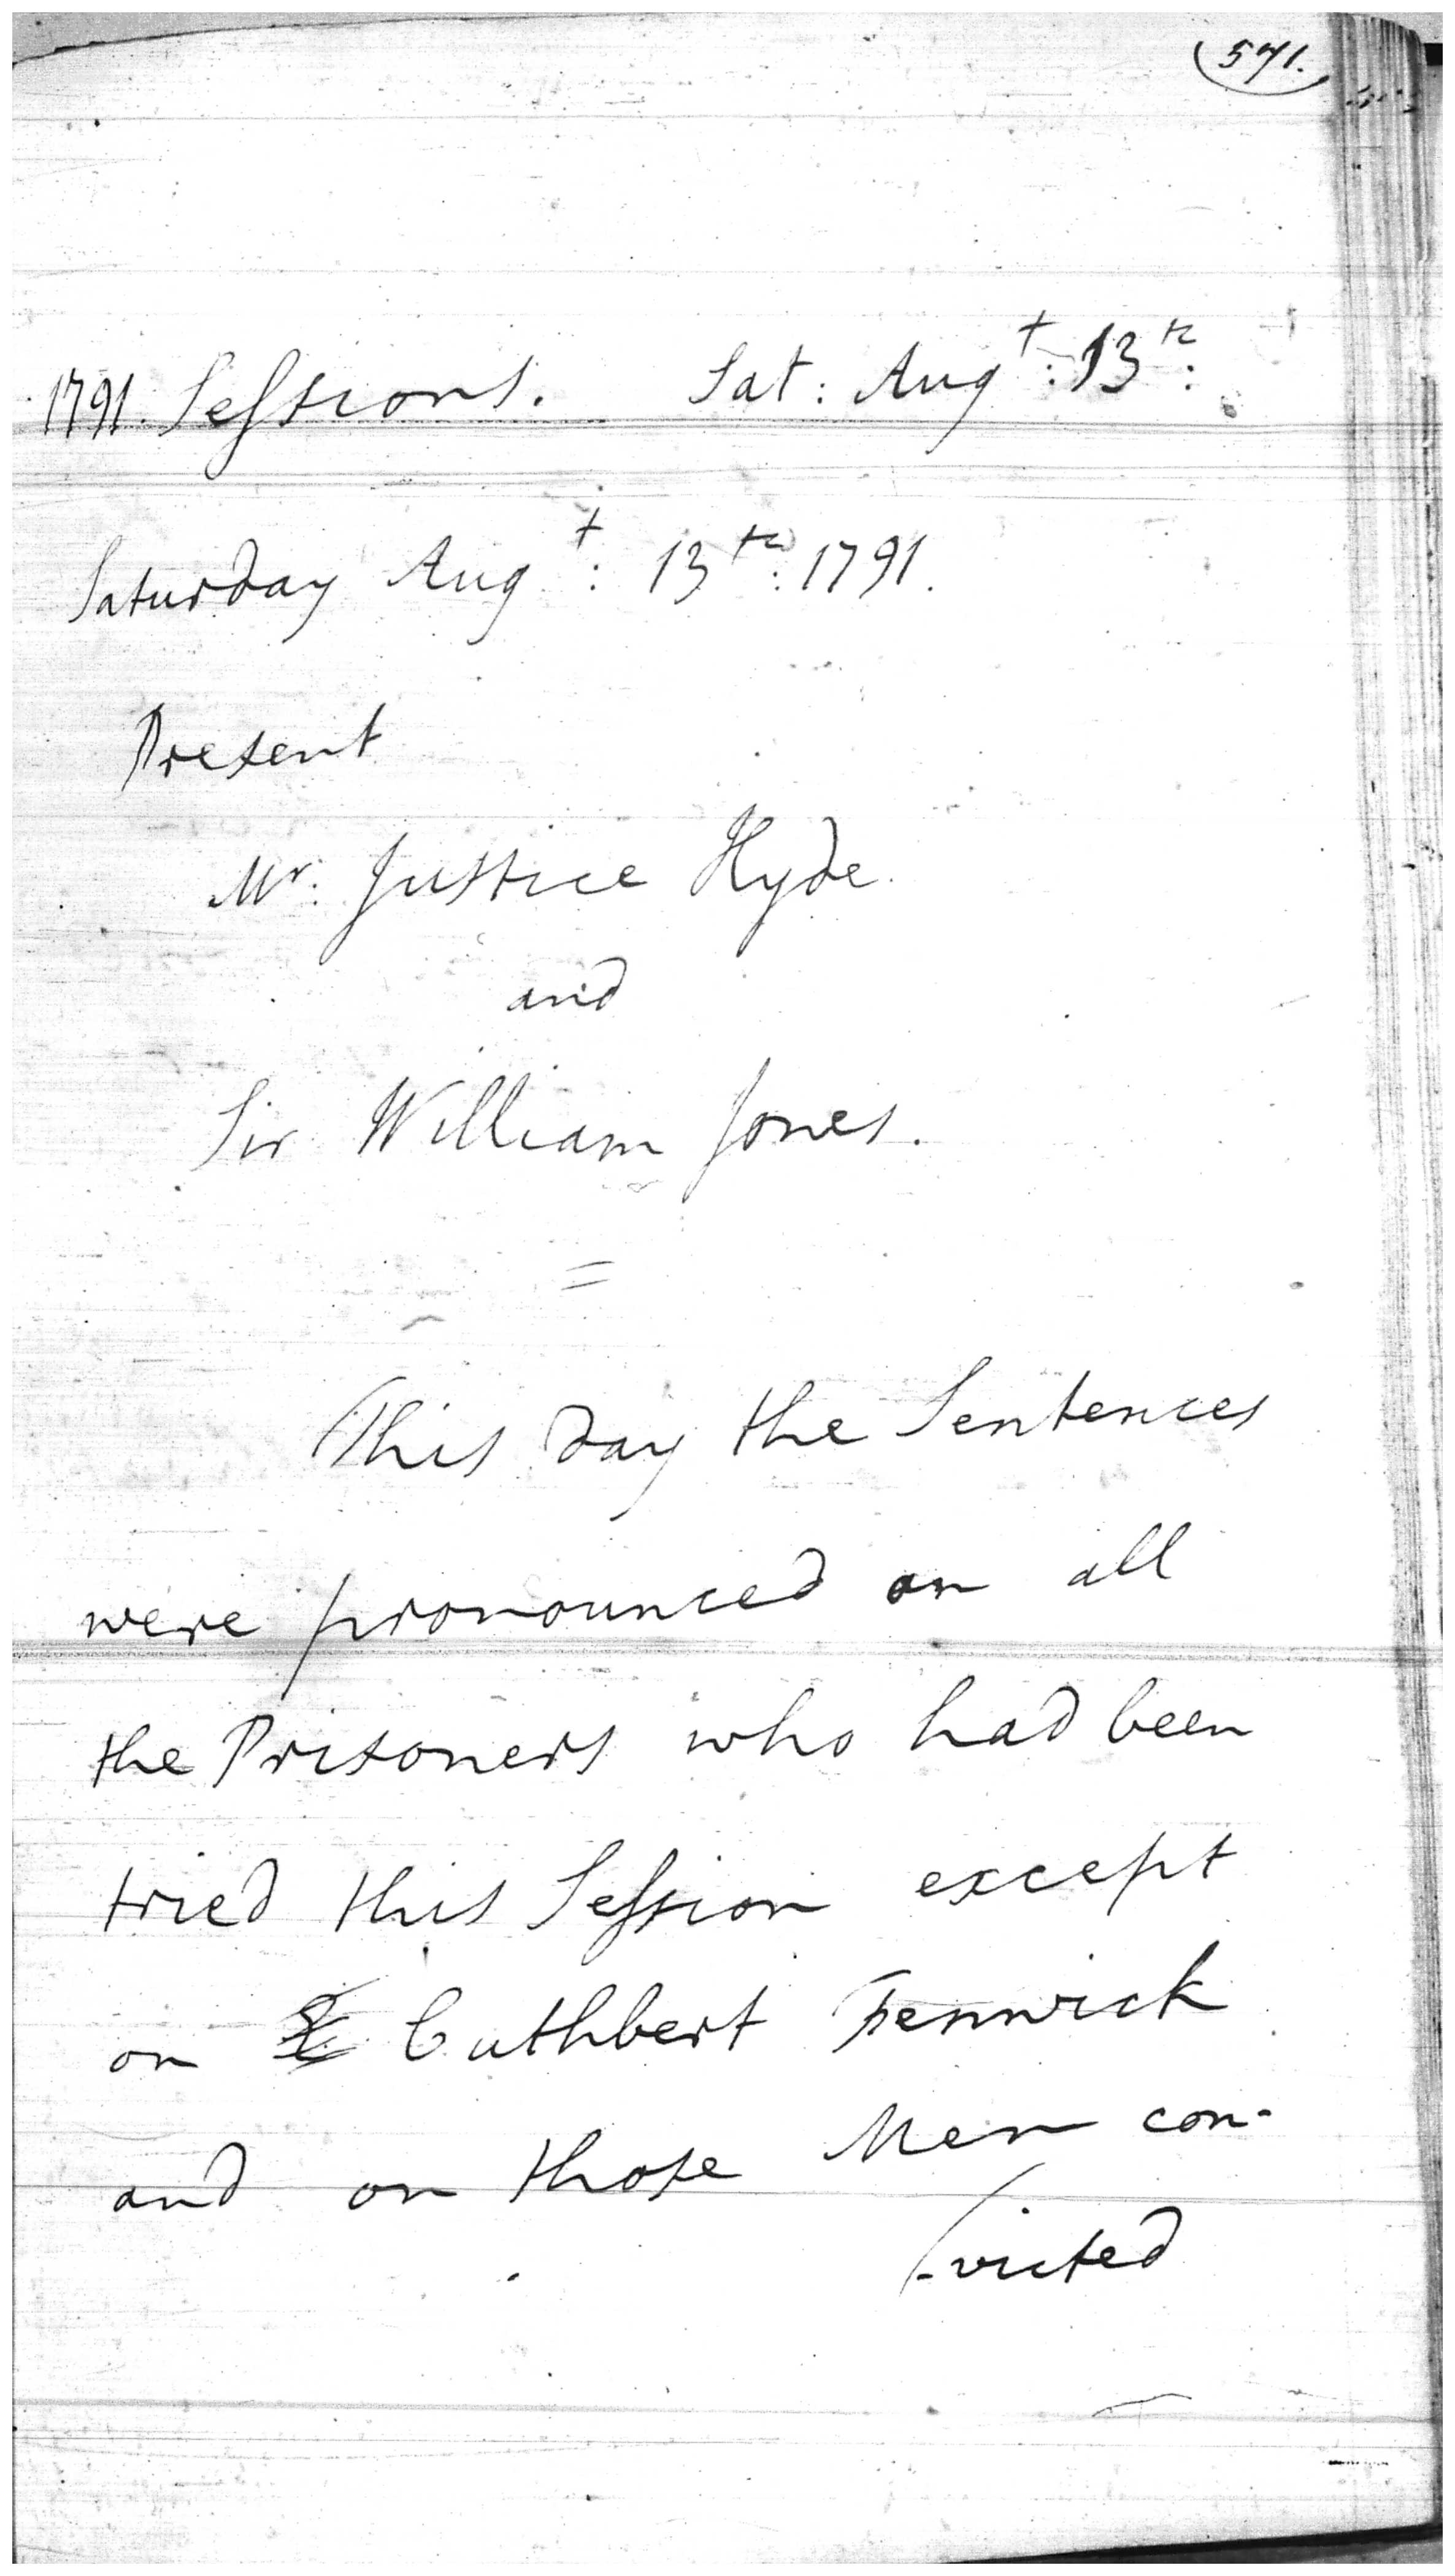 571.
1791. Sessions. Sat: Augt: 13th:
Saturday Augt: 13th: 1791.
Present
Mr: Justice Hyde.
and
Sir William Jones.
=
This day the Sentences
were pronounced on all
the Prisoners who had been
tried this Session except
on Cuthbert Fenwick
and on those Men con-
-victed